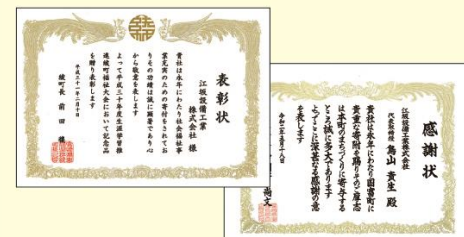 表彰状
江坂設備工業
株式会社 様
貴社は永年にわたり社会福祉事
業充実のための寄付をされてお
りその功績は誠に顕著であり心
から敬意を表します
よって平成三十年度生涯学習推
進綾町福祉大会において記念品
を贈り表彰します
平成三十一年二月十日
綾町長 前田 穰
感謝状
江坂設備工業株式会社
代表取締役 鳥山 貴生 殿
貴社は永年にわたり国富町に
貴重な寄附を賜りそのご厚志
は本町のまちづくりに寄与する
ところ誠に多大であります
よってここに深甚なる感謝の意
を表します